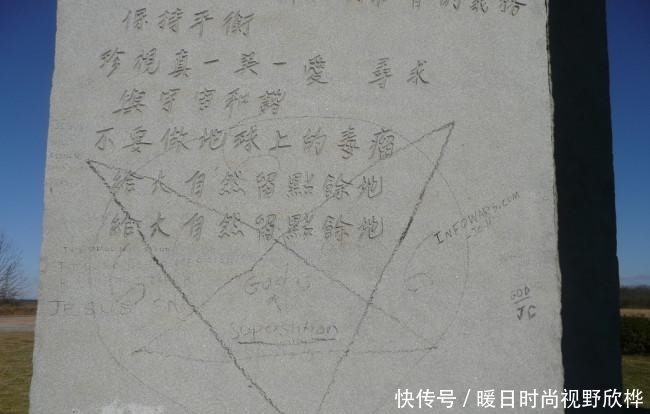 的義務
保持平衡
珍視真一美一愛 尋求
與宇宙和諧
不要做地球上的毒瘤
給大自然留點餘地
給大自然留點餘地
INFOWARS.COM
JESUS
God is
Superstition
GOD
JC
快传号 / 暖日时尚视野欣桦